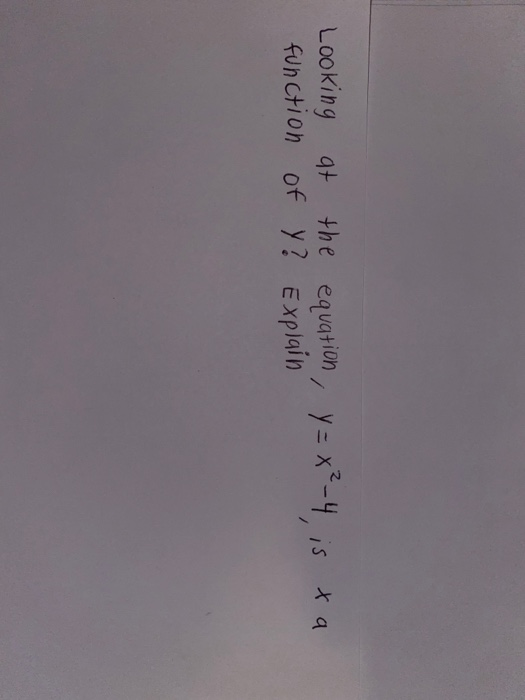 Looking at the equation, y = x² - 4, is x a
function of y? Explain